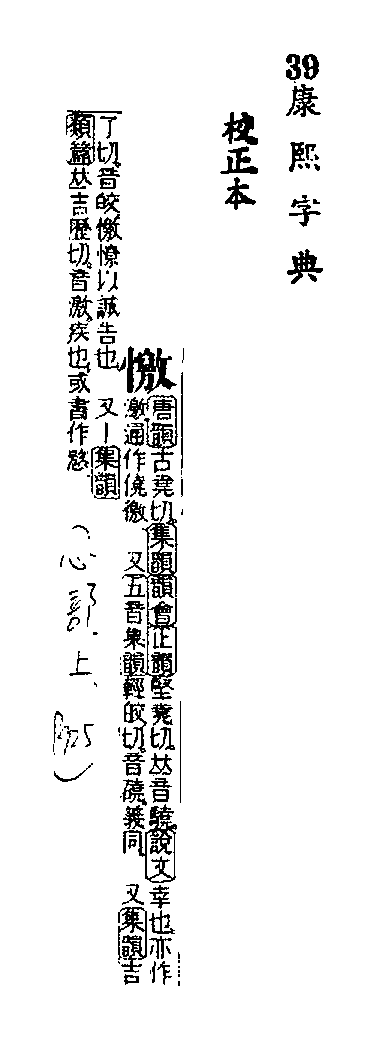 39康熙字典
校正本
憿
唐韻古堯切。集韻韻會正韻堅堯切。𠀤音驍。說文幸也。亦作
激通作僥徼 又五音集韻輕皎切。音磽。義同 又集韻吉
了切。音皎。憿憭以誠告也 又丨集韻
類篇𠀤吉歷切。音激。疾也。或書作
(心部上、